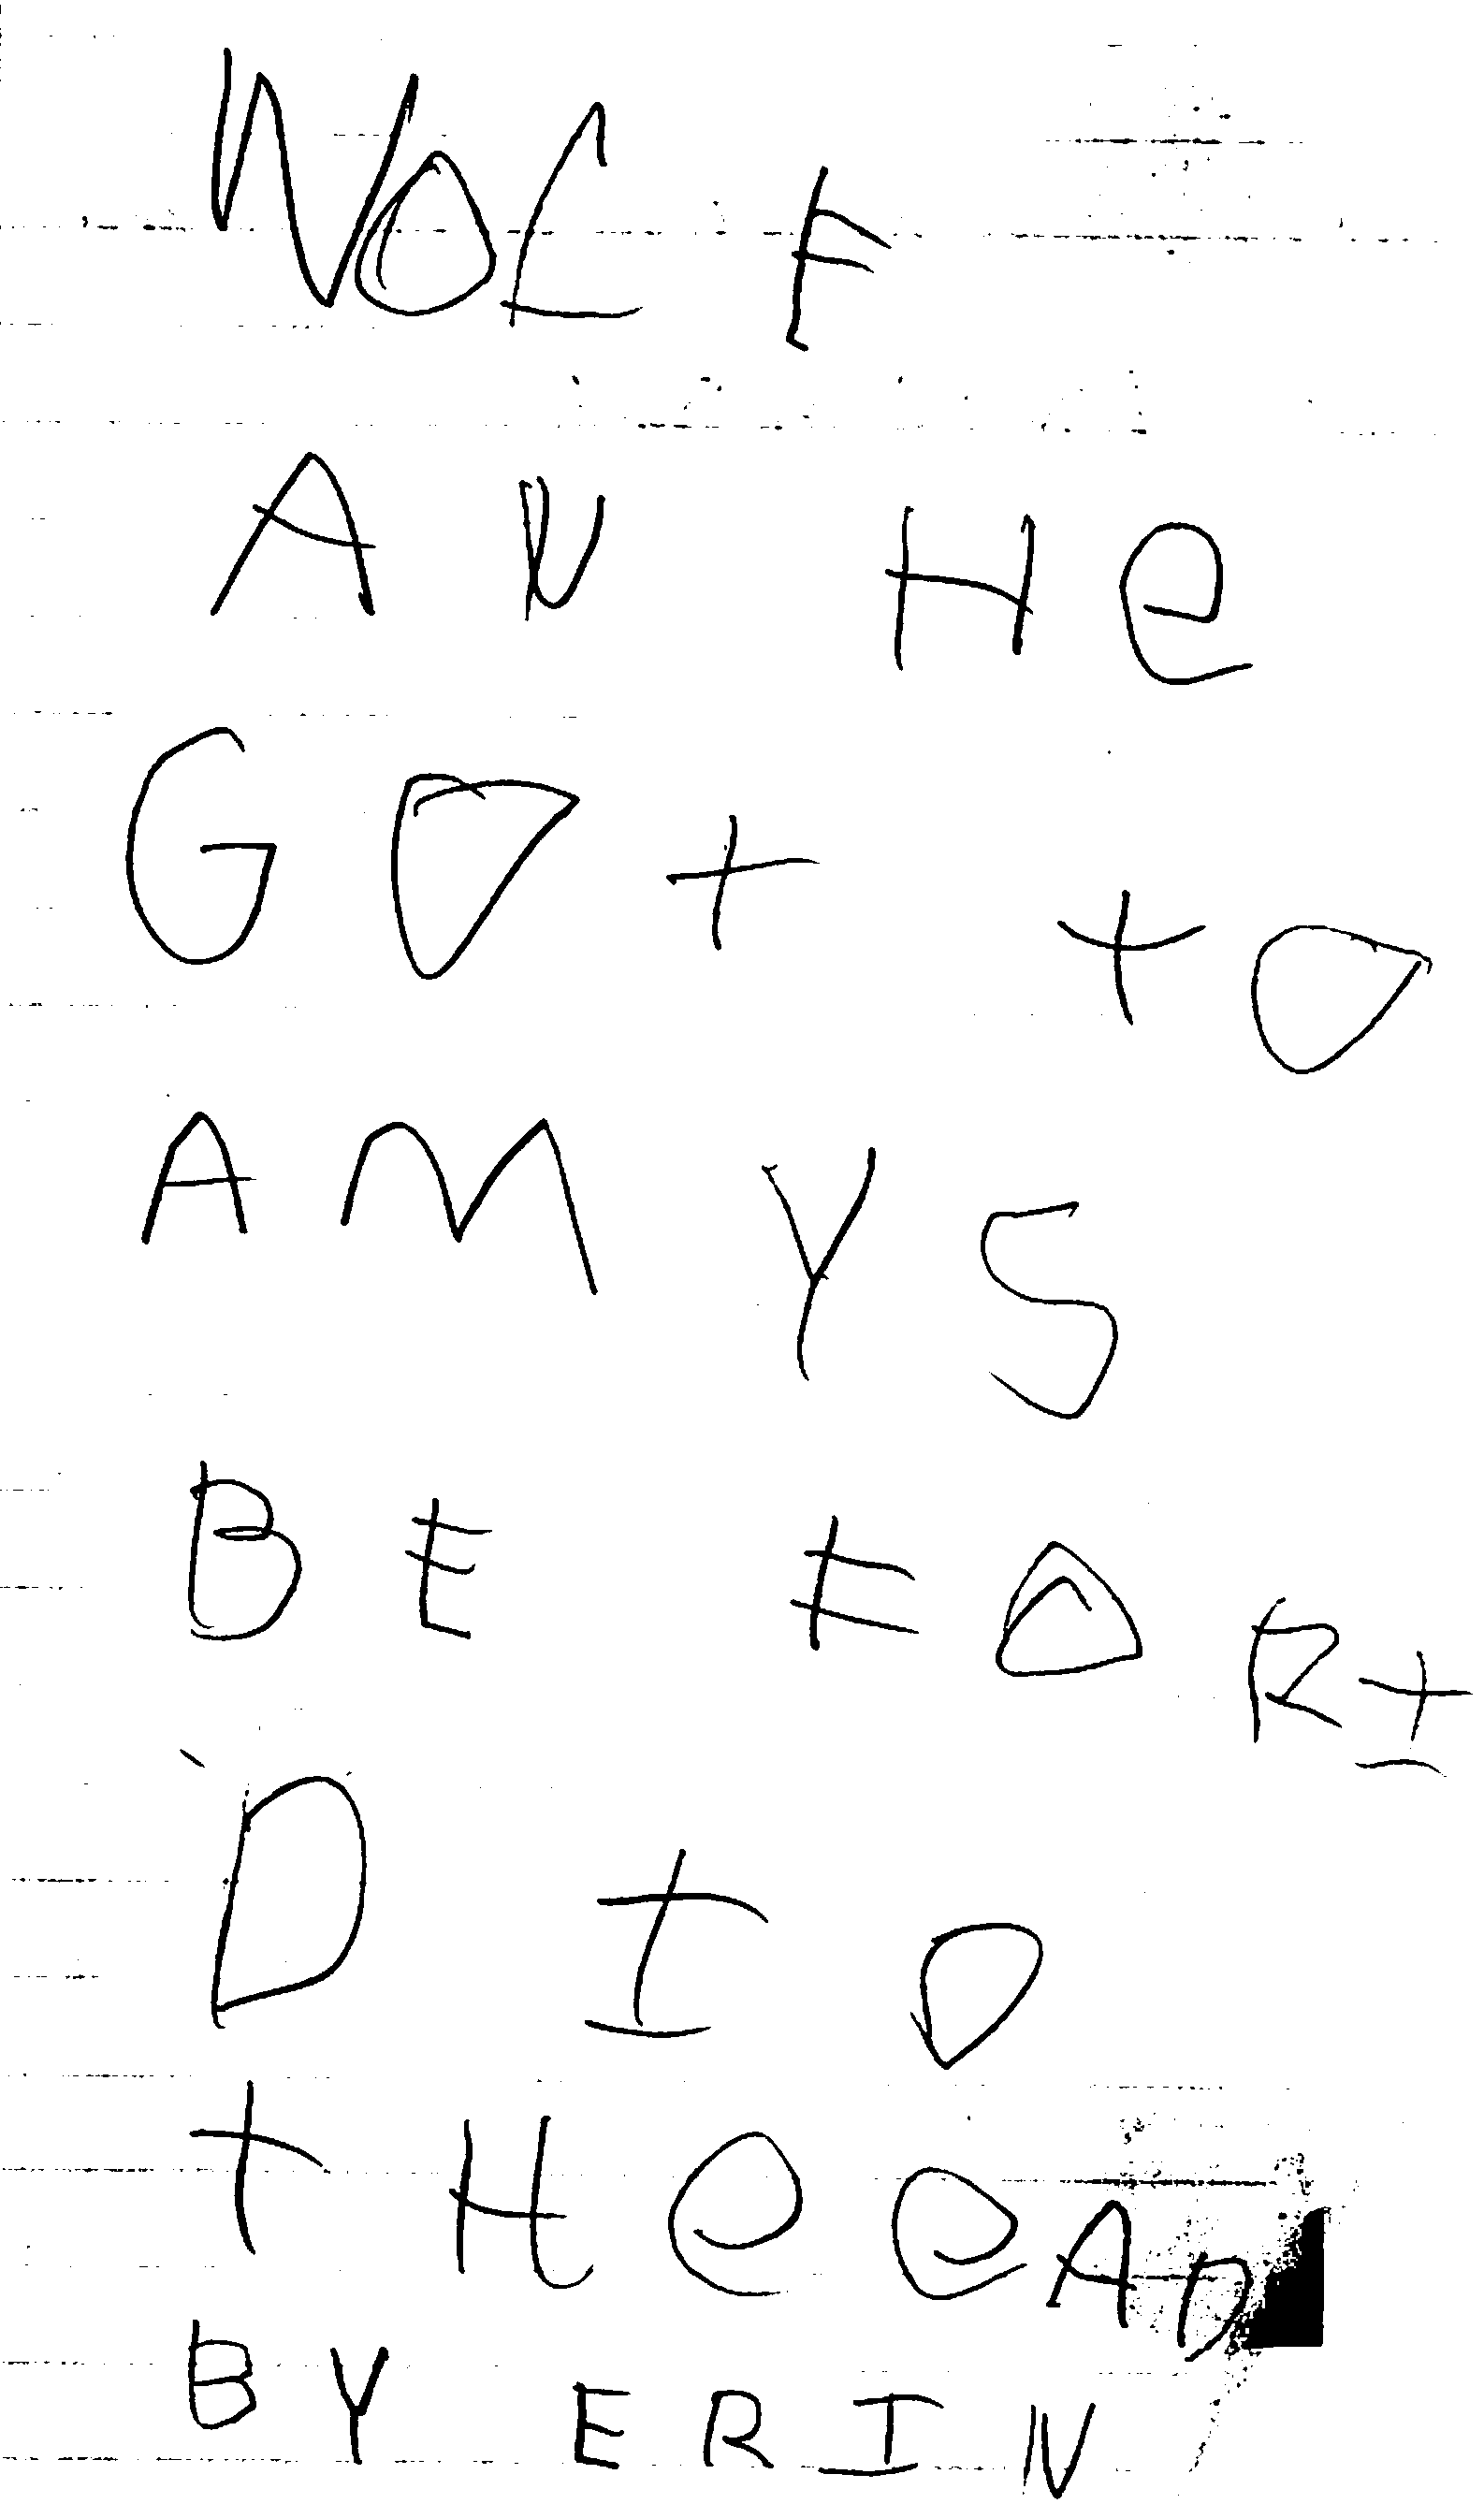 WOLF
AN He
GOt tO
AMYS
BE FORI
DID
tHe eAD
BY ERIN